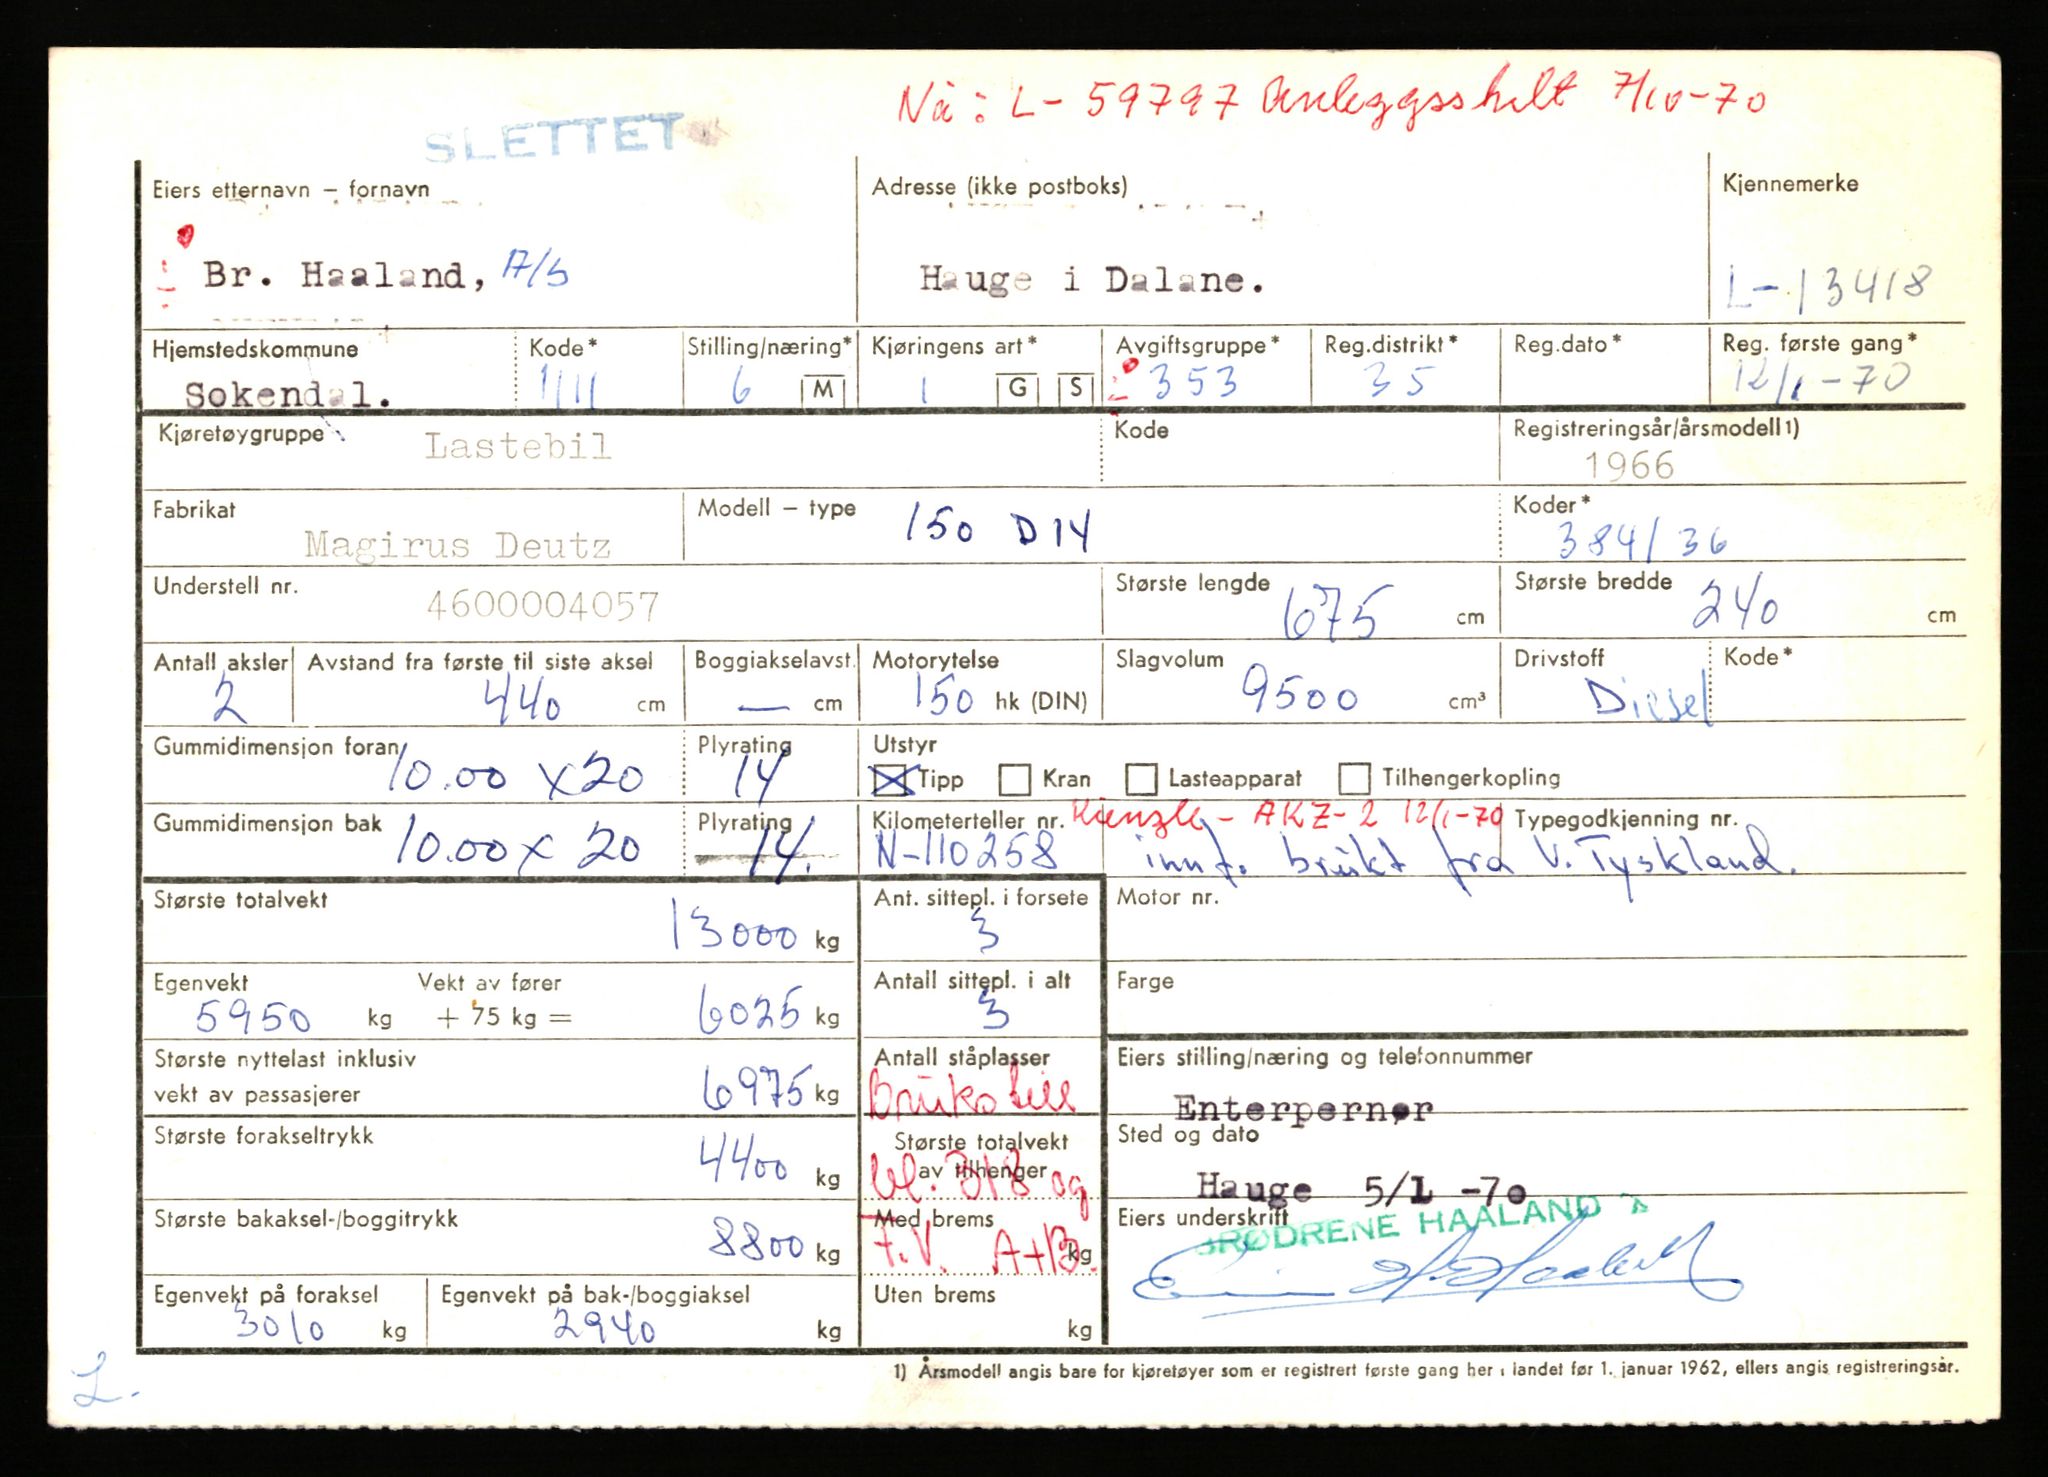 Nå: L - 59797 Anleggsskilt 7/10-70
SLETTET
Eiers etternavn – fornavn
Adresse (ikke postboks)
Kjennemerke
Br. Haaland, A/S
Hauge i Dalane.
L-13418
Hjemstedskommune
Kode*
Stilling/næring*
Kjøringens art*
Avgiftsgruppe*
Reg.distrikt*
Reg.dato*
Reg. første gang*
Sokendal.
1111
6 M
1 G S
353
35
12/1-70
Kjøretøygruppe
Lastebil
Kode
Registreringsår/årsmodell1)
1966
Fabrikat
Magirus Deutz
Modell – type
150 D 14
Koder*
384/36
Understell nr.
4600004057
Største lengde
675 cm
Største bredde
240 cm
Antall aksler
2
Avstand fra første til siste aksel
440 cm
Boggiakselavst.
— cm
Motorytelse
150 hk (DIN)
Slagvolum
9500 cm³
Drivstoff
Diesel
Kode*
Gummidimensjon foran
10.00 x 20
Plyrating
14
Utstyr
Tipp Kran Lasteapparat Tilhengerkopling
Gummidimensjon bak
10.00 x 20
Plyrating
14.
Kilometerteller nr. Kienzle - AKZ-2 12/1-70
N-110258
Typegodkjenning nr.
innf. brukt fra V. Tyskland.
Største totalvekt
13000 kg
Ant. sittepl. i forsete
3
Motor nr.
Egenvekt
5950 kg
Vekt av fører
+ 75 kg =
6025 kg
Antall sittepl. i alt
3
Farge
Største nyttelast inklusiv
vekt av passasjerer
6975 kg
Antall ståplasser
Eiers stilling/næring og telefonnummer
Enterpernør
Største forakseltrykk
4400 kg
Største totalvekt
av tilhenger
og
Sted og dato
Hauge 5/1 -70
Største bakaksel-/boggitrykk
8800 kg
Med brems
kg
F.V. A+B.
Eiers underskrift
BRØDRENE HAALAND
Egenvekt på foraksel
3010 kg
Egenvekt på bak-/boggiaksel
2940 kg
Uten brems
kg
L.
1) Årsmodell angis bare for kjøretøyer som er registrert første gang her i landet før 1. januar 1962, ellers angis registreringsår.